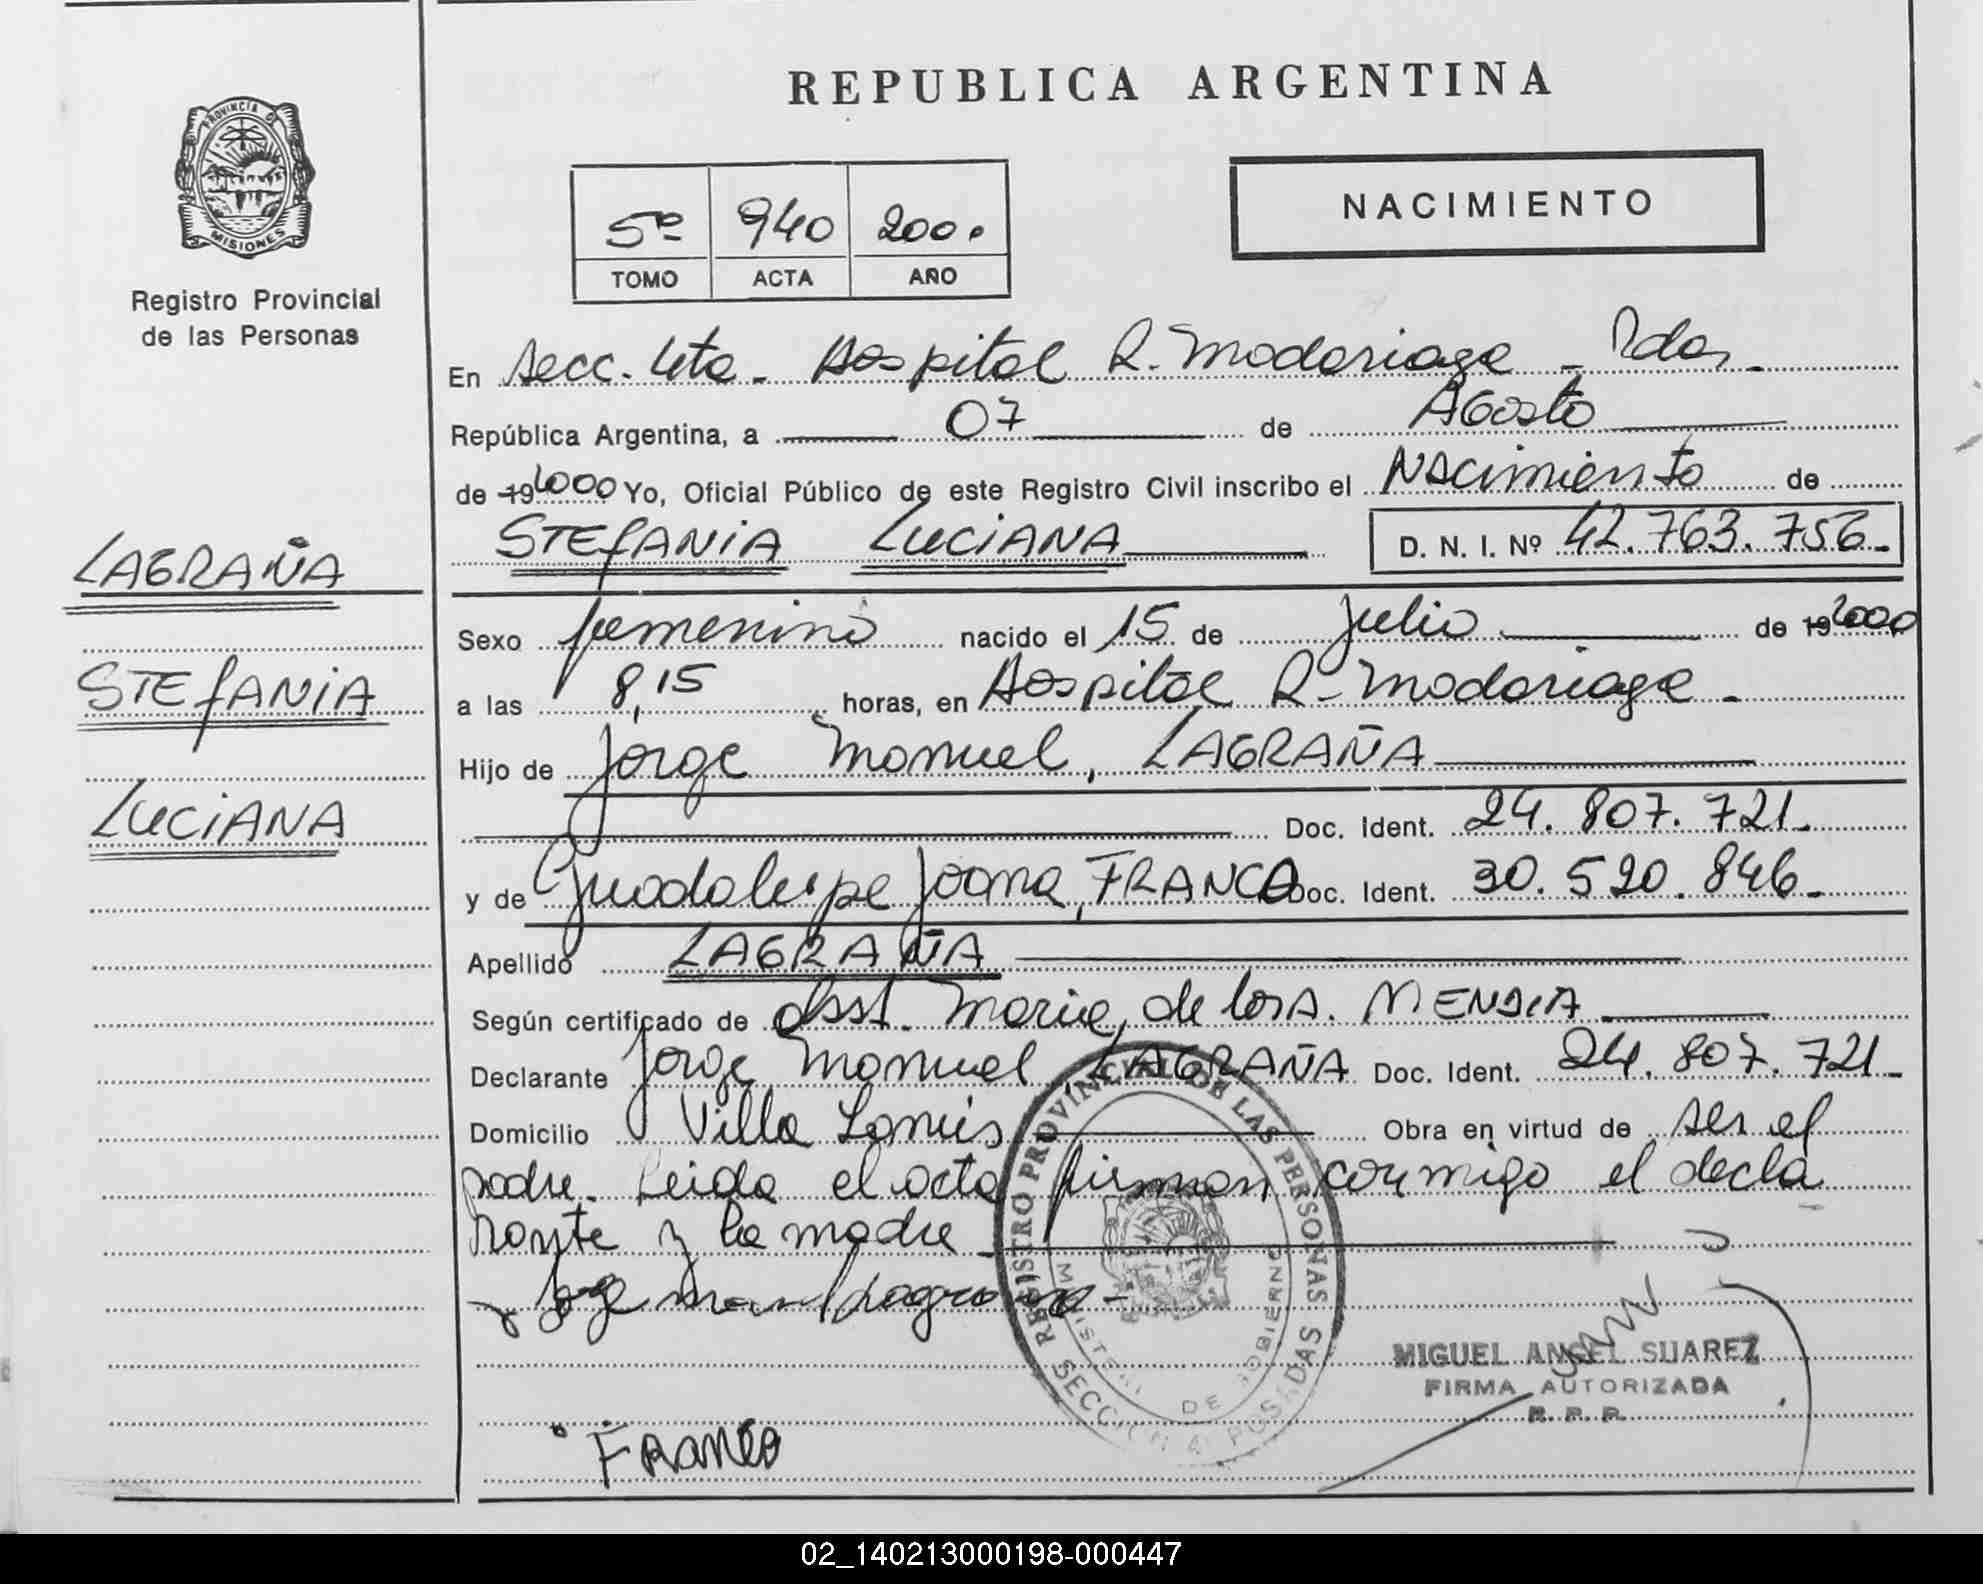 REPUBLICA ARGENTINA
PROVINCIA DE
MISIONES
Registro Provincial
de las Personas
NACIMIENTO
5º 940 2000
TOMO ACTA AÑO
En Secc. 4ta - Hospital R. Madariaga - Pdas.
República Argentina, a 07 de Agosto
de 19 2000 Yo, Oficial Público de este Registro Civil inscribo el Nacimiento de
STEfANIA LUCIANA D. N. I. Nº 42.763.756.-
LAGRAÑA
STEfANIA
LUCIANA
Sexo femenino nacido el 15 de Julio de 19 2000
a las 8,15 horas, en Hospital R. Madariaga -
Hijo de Jorge Manuel, LAGRAÑA
Doc. Ident. 24.807.721.-
y de Guadalupe Joana, FRANCO Doc. Ident. 30.520.846.-
Apellido LAGRAÑA
Según certificado de Obst. Maria de los A. MENDIA
Declarante Jorge Manuel LAGRAÑA Doc. Ident. 24.807.721.-
Domicilio Villa Lanús Obra en virtud de ser el
padre. Leida el acta firman conmigo el decla
rante y la madre -
Jorge Manuel Lagraña
REGISTRO PROVINCIAL DE LAS PERSONAS
MINISTERIO DE GOBIERNO
SECCION 4ª POSADAS
MIGUEL ANGEL SUAREZ
FIRMA AUTORIZADA
R. P. P.
FRANCO
02_140213000198-000447